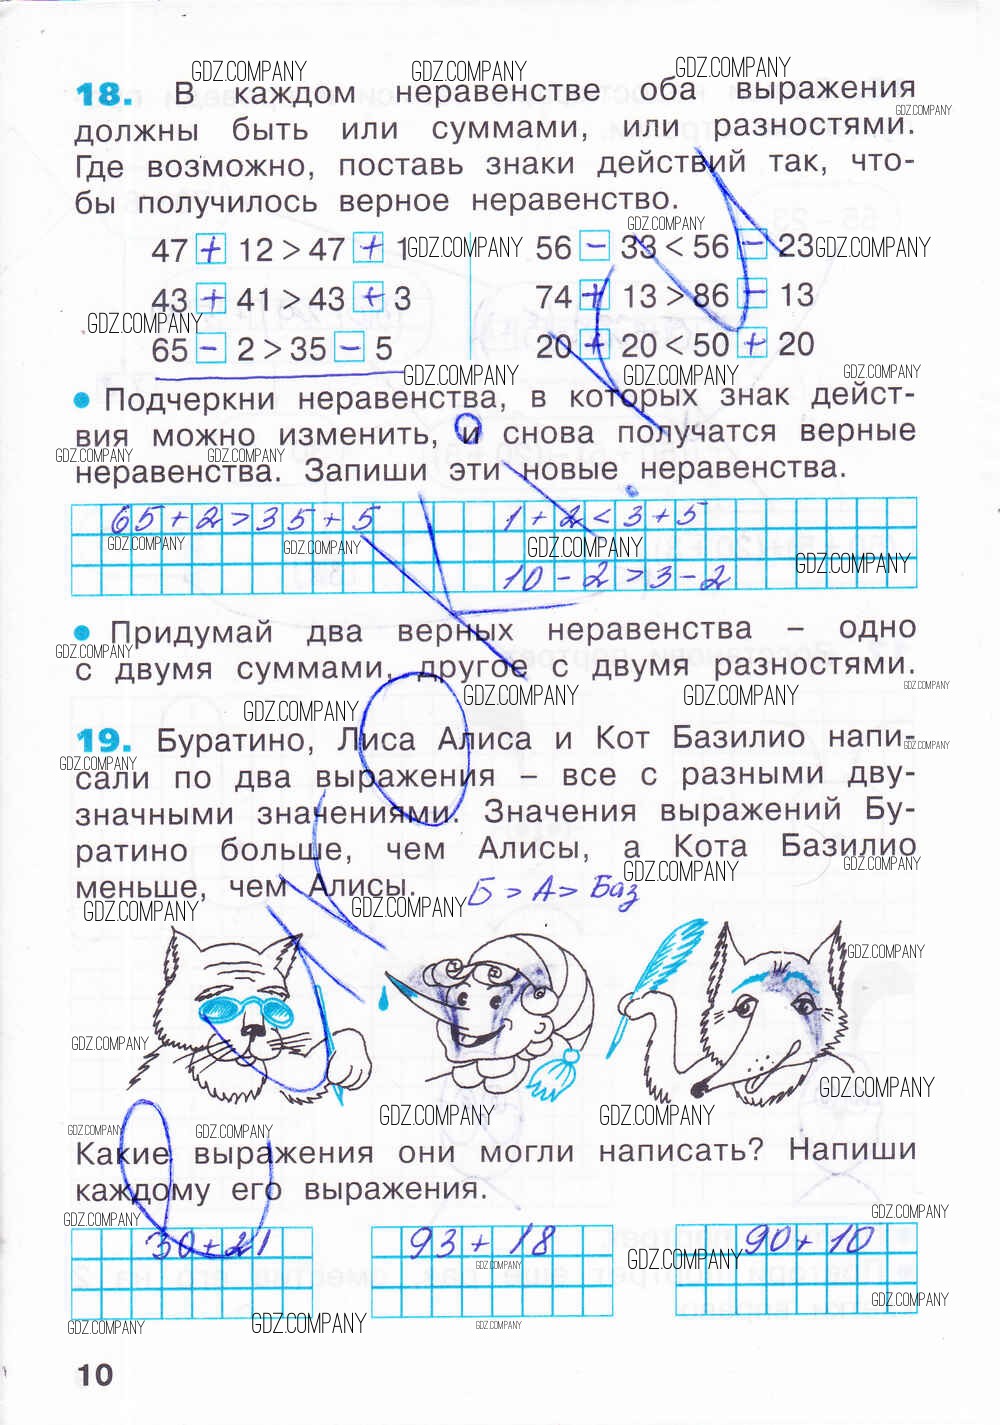 18. В каждом неравенстве оба выражения
должны быть или суммами, или разностями.
Где возможно, поставь знаки действий так, что-
бы получилось верное неравенство.
47 + 12 > 47 + 1
56 - 33 < 56 - 23
43 + 41 > 43 + 3
74 + 13 > 86 - 13
65 - 2 > 35 - 5
20 + 20 < 50 + 20
• Подчеркни неравенства, в которых знак дейст-
вия можно изменить, и снова получатся верные
неравенства. Запиши эти новые неравенства.
65 + 2 > 35 + 5
1 + 2 < 3 + 5
10 - 2 > 3 - 2
• Придумай два верных неравенства – одно
с двумя суммами, другое с двумя разностями.
19. Буратино, Лиса Алиса и Кот Базилио напи-
сали по два выражения – все с разными дву-
значными значениями. Значения выражений Бу-
ратино больше, чем Алисы, а Кота Базилио
меньше, чем Алисы. Б > А > Баз
Какие выражения они могли написать? Напиши
каждому его выражения.
30 + 21
93 + 18
90 + 10
10
GDZ.COMPANY